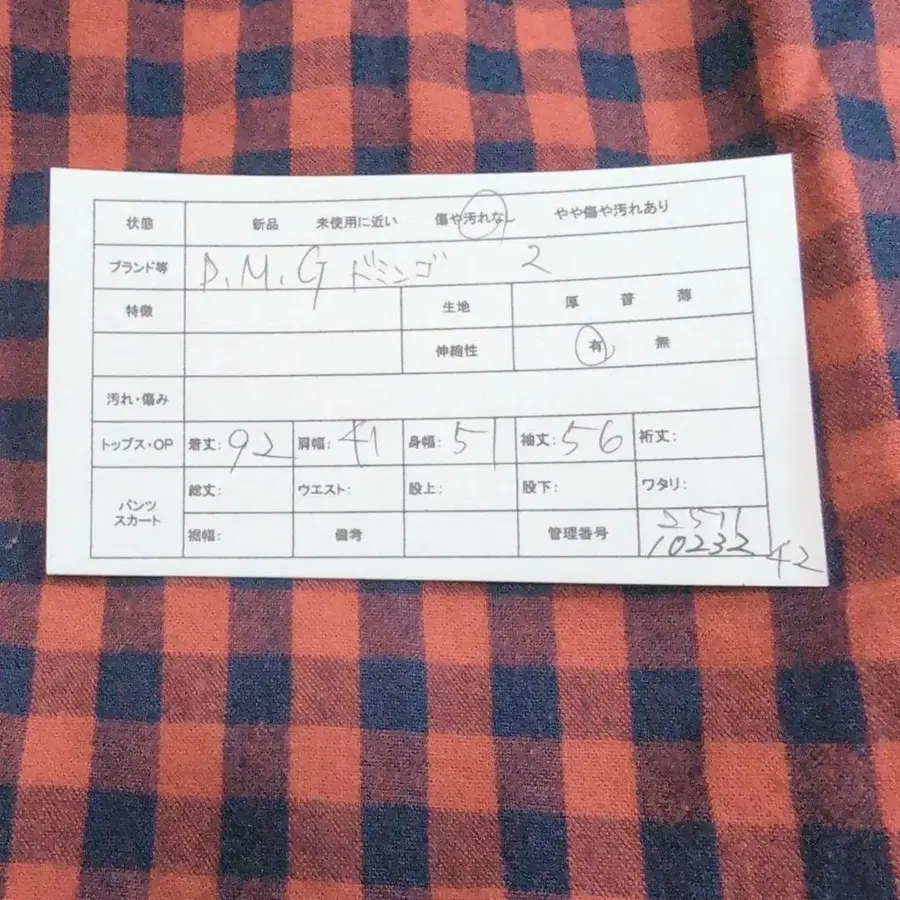 状態 新品 未使用に近い 傷や汚れなし やや傷や汚れあり
ブランド等 D.M.G ドミンゴ 2
特徴 生地 厚 普 薄
伸縮性 有 無
汚れ・傷み
トップス・OP 着丈: 92 肩幅: 41 身幅: 51 袖丈: 56 裄丈:
パンツ スカート 総丈: ウエスト: 股上: 股下: ワタリ:
裾幅: 備考 管理番号
10232
42